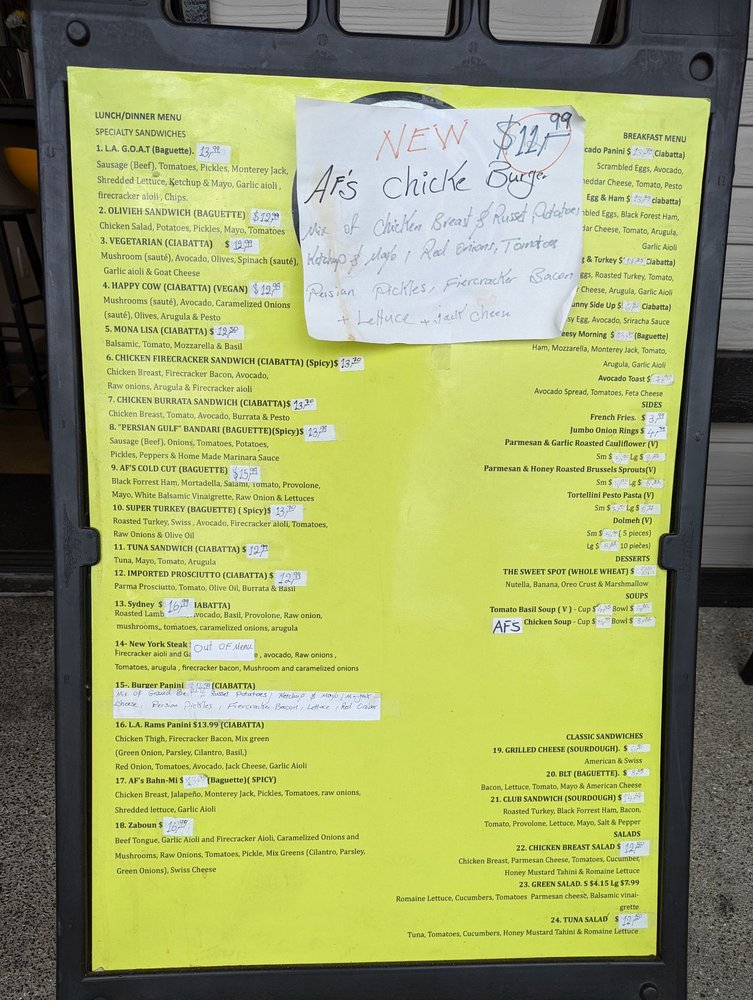 LUNCH/DINNER MENU
SPECIALTY SANDWICHES
1. L.A. G.O.A.T (Baguette).
Sausage (Beef), Tomatoes, Pickles, Monterey Jack,
Shredded Lettuce, Ketchup & Mayo, Garlic aioli ,
firecracker aioli , Chips.
2. OLIVIEH SANDWICH (BAGUETTE) $12.99
Chicken Salad, Potatoes, Pickles, Mayo, Tomatoes
3. VEGETARIAN (CIABATTA) $ 12.99
Mushroom (sauté), Avocado, Olives, Spinach (sauté),
Garlic aioli & Goat Cheese
4. HAPPY COW (CIABATTA) (VEGAN) $12.99
Mushrooms (sauté), Avocado, Caramelized Onions
(sauté), Olives, Arugula & Pesto
5. MONA LISA (CIABATTA) $
Balsamic, Tomato, Mozzarella & Basil
6. CHICKEN FIRECRACKER SANDWICH (CIABATTA) (Spicy)$
Chicken Breast, Firecracker Bacon, Avocado,
Raw onions, Arugula & Firecracker aioli
7. CHICKEN BURRATA SANDWICH (CIABATTA)$
Chicken Breast, Tomato, Avocado, Burrata & Pesto
8. "PERSIAN GULF" BANDARI (BAGUETTE)(Spicy)$ 13.99
Sausage (Beef), Onions, Tomatoes, Potatoes,
Pickles, Peppers & Home Made Marinara Sauce
9. AF'S COLD CUT (BAGUETTE) $15.99
Black Forrest Ham, Mortadella, Salami, Tomato, Provolone,
Mayo, White Balsamic Vinaigrette, Raw Onion & Lettuces
10. SUPER TURKEY (BAGUETTE) ( Spicy)$
Roasted Turkey, Swiss , Avocado, Firecracker aioli, Tomatoes,
Raw Onions & Olive Oil
11. TUNA SANDWICH (CIABATTA) $ 12.99
Tuna, Mayo, Tomato, Arugula
12. IMPORTED PROSCIUTTO (CIABATTA) $ 12.99
Parma Prosciutto, Tomato, Olive Oil, Burrata & Basil
13. Sydney $ 16.99 IABATTA)
Roasted Lamb vocado, Basil, Provolone, Raw onion,
mushrooms,, tomatoes, caramelized onions, arugula
14- New York Steak Out OF Menu
Firecracker aioli and Ga , avocado, Raw onions ,
Tomatoes, arugula , firecracker bacon, Mushroom and caramelized onions
15-. Burger Panini (CIABATTA)
Mix of Ground Russet Potatoes, Ketchup & Mayo,
Cheese, Persian Pickles, Fiercracker Bacon, Lettuce, Red Onion
16. L.A. Rams Panini $13.99 (CIABATTA)
Chicken Thigh, Firecracker Bacon, Mix green
(Green Onion, Parsley, Cilantro, Basil,)
Red Onion, Tomatoes, Avocado, Jack Cheese, Garlic Aioli
17. AF's Bahn-Mi $ (Baguette)( SPICY)
Chicken Breast, Jalapeño, Monterey Jack, Pickles, Tomatoes, raw onions,
Shredded lettuce, Garlic Aioli
18. Zaboun $ 16.99
Beef Tongue, Garlic Aioli and Firecracker Aioli, Caramelized Onions and
Mushrooms, Raw Onions, Tomatoes, Pickle, Mix Greens (Cilantro, Parsley,
Green Onions), Swiss Cheese
NEW $11.99
AF's Chicke Burger
Mix of Chicken Breast & Russet Potatoes
Ketchup & Mayo, Red Onions, Tomatoes
Persian Pickles, Fiercracker Bacon
+ Lettuce + Jack Cheese
BREAKFAST MENU
cado Panini $ Ciabatta)
Scrambled Eggs, Avocado,
heddar Cheese, Tomato, Pesto
Egg & Ham $ ciabatta)
bled Eggs, Black Forest Ham,
dar Cheese, Tomato, Arugula,
Garlic Aioli
g & Turkey $ iabatta)
ggs, Roasted Turkey, Tomato,
Cheese, Arugula, Garlic Aioli
unny Side Up $ Ciabatta)
sy Egg, Avocado, Sriracha Sauce
eesy Morning $ (Baguette)
Ham, Mozzarella, Monterey Jack, Tomato,
Arugula, Garlic Aioli
Avocado Toast $
Avocado Spread, Tomatoes, Feta Cheese
SIDES
French Fries. $ 3.99
Jumbo Onion Rings $ 4.99
Parmesan & Garlic Roasted Cauliflower (V)
Sm $ Lg $
Parmesan & Honey Roasted Brussels Sprouts(V)
Sm $ Lg $
Tortellini Pesto Pasta (V)
Sm $ Lg $
Dolmeh (V)
Sm $ ( 5 pieces)
Lg $ 10 pieces)
DESSERTS
THE SWEET SPOT (WHOLE WHEAT) $
Nutella, Banana, Oreo Crust & Marshmallow
SOUPS
Tomato Basil Soup ( V ) - Cup $ Bowl $
AFS Chicken Soup - Cup $ Bowl $
CLASSIC SANDWICHES
19. GRILLED CHEESE (SOURDOUGH). $
American & Swiss
20. BLT (BAGUETTE). $
Bacon, Lettuce, Tomato, Mayo & American Cheese
21. CLUB SANDWICH (SOURDOUGH) $
Roasted Turkey, Black Forrest Ham, Bacon,
Tomato, Provolone, Lettuce, Mayo, Salt & Pepper
SALADS
22. CHICKEN BREAST SALAD $
Chicken Breast, Parmesan Cheese, Tomatoes, Cucumber,
Honey Mustard Tahini & Romaine Lettuce
23. GREEN SALAD. S $4.15 Lg $7.99
Romaine Lettuce, Cucumbers, Tomatoes Parmesan cheese, Balsamic vinai-
grette
24. TUNA SALAD $
Tuna, Tomatoes, Cucumbers, Honey Mustard Tahini & Romaine Lettuce